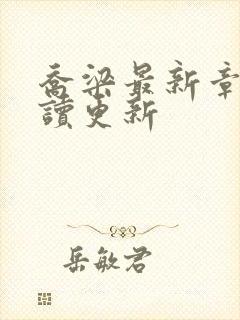 喬梁最新章
讀更新
岳敏君